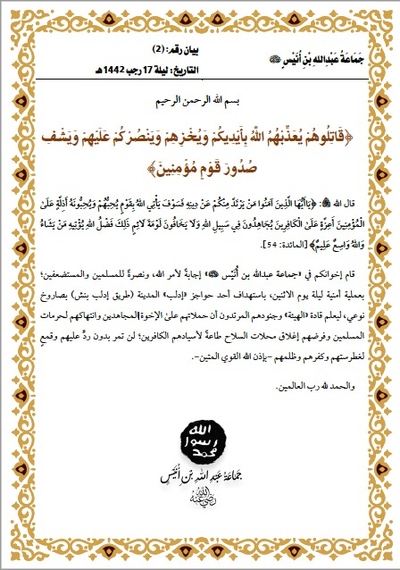 جَمَاعَةُ عَبْدِاللهِ بْنِ أُنَيْسٍ ﷺ
بيان رقم: (2)
التاريخ: ليلة 17 رجب 1442 هـ
بسم الله الرحمن الرحيم
﴿قَاتِلُوهُمْ يُعَذِّبْهُمُ اللَّهُ بِأَيْدِيكُمْ وَيُخْزِهِمْ وَيَنْصُرْكُمْ عَلَيْهِمْ وَيَشْفِ
صُدُورَ قَوْمٍ مُؤْمِنِينَ﴾
قال الله ﷻ: ﴿يَا أَيُّهَا الَّذِينَ آمَنُوا مَنْ يَرْتَدَّ مِنْكُمْ عَنْ دِينِهِ فَسَوْفَ يَأْتِي اللَّهُ بِقَوْمٍ يُحِبُّهُمْ وَيُحِبُّونَهُ أَذِلَّةٍ عَلَى
الْمُؤْمِنِينَ أَعِزَّةٍ عَلَى الْكَافِرِينَ يُجَاهِدُونَ فِي سَبِيلِ اللَّهِ وَلَا يَخَافُونَ لَوْمَةَ لَائِمٍ ذَلِكَ فَضْلُ اللَّهِ يُؤْتِيهِ مَنْ يَشَاءُ
وَاللَّهُ وَاسِعٌ عَلِيمٌ﴾ [المائدة: 54].
قام إخوانكم في «جماعة عبدالله بن أُنَيْسٍ» إجابةً لأمر الله، ونصرةً للمسلمين والمستضعفين؛
بعملية أمنية ليلة يوم الاثنين، باستهداف أحد حواجز «إدلب» المدينة (طريق إدلب بنش) بصاروخ
نوعي، ليعلم قادة «الهيئة» وجنودهم المرتدون أن حملاتهم على الإخوة المجاهدين وانتهاكهم لحرمات
المسلمين وفرضهم إغلاق محلات السلاح طاعةً لأسيادهم الكافرين؛ لن تمر بدون ردٍّ عليهم وقمعٍ
لغطرستهم وكفرهم وظلمهم –بإذن الله القوي المتين–.
والحمد لله رب العالمين.
الله
رسول
محمد
جَمَاعَةُ عَبْدِ اللهِ بْنِ أُنَيْسٍ
رضي الله عنه